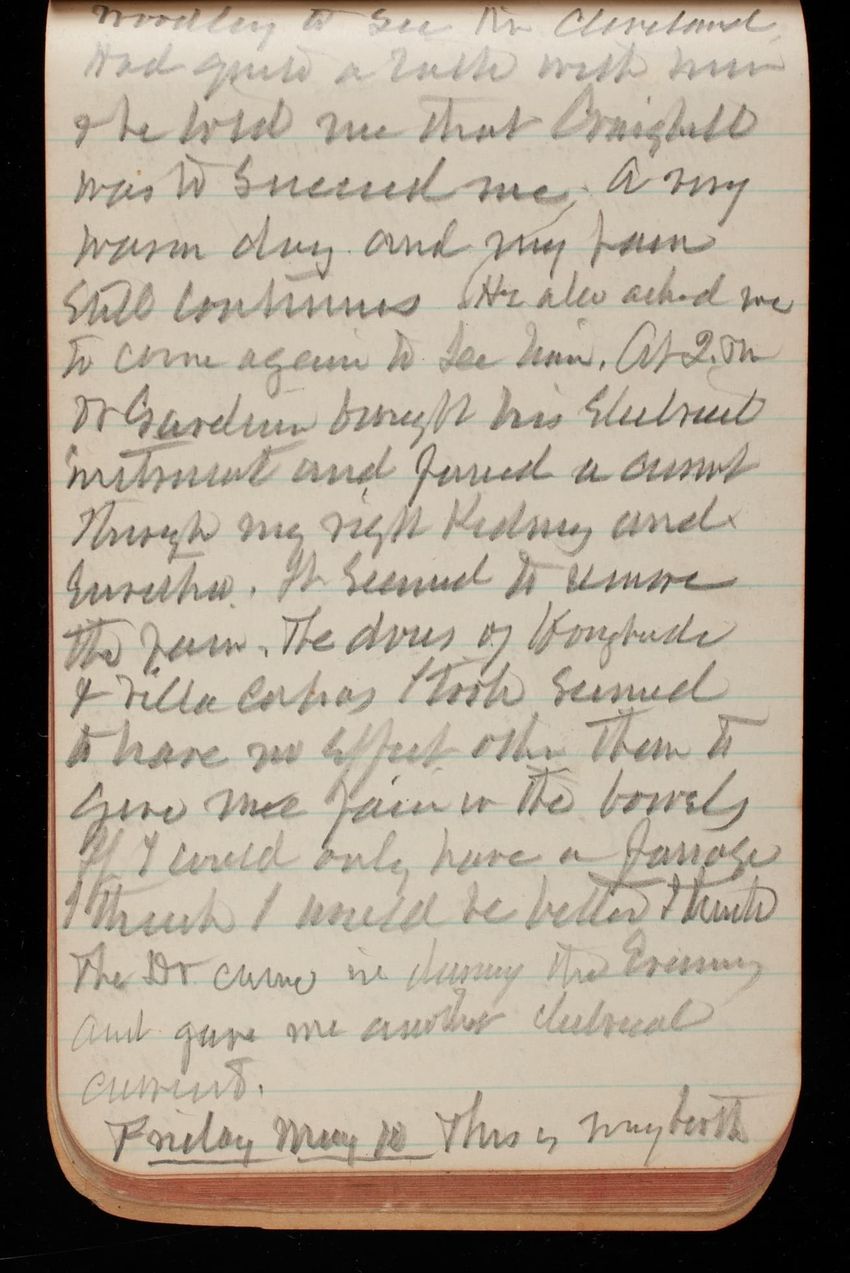 Woodley to see Mr Cleveland.
Had quite a talk with him
& he told me that Craighill
was to succeed me. A very
warm day and my pain
still continues He also asked me
to come again to see him. At 2. Pm
Dr Gardiner brought his Electrical
instrument and passed a current
through my right Kidney and
Eurethra. It seemed to remove
the pain. The doses of
& I took seemed
to have no effect other than to
give me pain in the bowels
If I could only have a passage
I think I would be better I think
The Dr came in during the Evening
and gave me another electrical
current.
Friday May 10 This is my birth